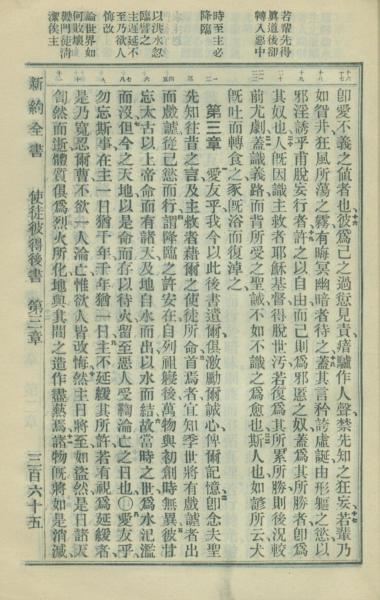 若輩先得
眞道後卻
轉入惡中
時至主必
降臨
以洪水忽
臨譬之
主遲延不
至乃欲人
悔改
論世界如
何敗壞
勸門徒清
潔俟主
卽愛不義之値者也彼爲己之過愆見責瘖驢作人聲禁先知之狂妄若輩乃
如眢井狂風所蕩之霧有晦冥幽暗者待之蓋其言矜誇虛誕由形軀之慾以
邪淫誘乎甫脫妄行者許之以自由而己則爲邪慝之奴蓋爲其所勝者卽爲
其奴也人旣因識主救者耶穌基督得脫世汚若復爲其所累所勝則後況較
前尤劇蓋識義路而背所受之聖誡不如不識之爲愈也斯人也如諺所云犬
旣吐而轉食之豕旣浴而復滓之
第三章 愛友乎我今以此後書遺爾俱激勵爾誠心俾爾記憶卽念夫聖
先知往昔之言及主救者藉爾之使徒所命焉首宜知季世將有戲謔者出
而戲謔從己慾而行謂降臨之許安在自列祖寢後萬物與初創時無異彼甘
忘太古以上帝命而有諸天及地自水而出以水而結故當時之世爲水氾濫
而沒但今之天地以是命而存以待火留至惡人受鞫淪亡之日也〇愛友乎
勿忘斯事在主一日猶千年千年猶一日主不延緩其所許若有視爲延緩者
是乃寬忍爾曹不欲一人淪亡惟欲人皆改悔然主日將至如盜然是日諸天
訇然而逝體質俱爲烈火所化地與其間之造作盡爇焉諸物旣將如是消滅
新約全書 使徒彼得後書 第三章 三百六十五